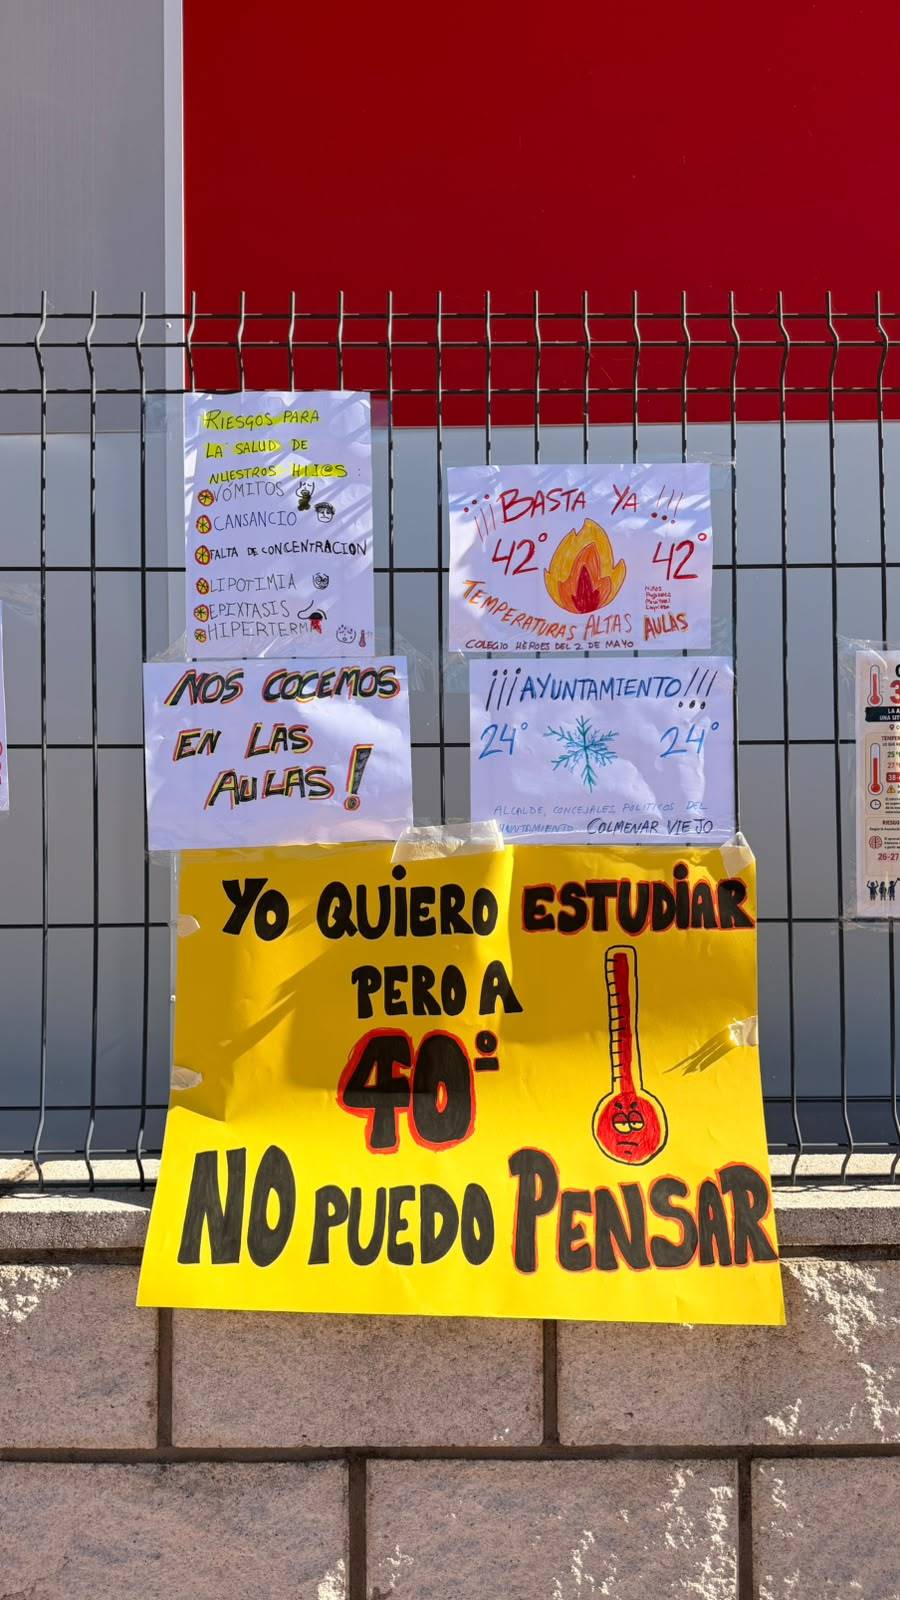 RIESGOS PARA
LA SALUD DE
NUESTROS HIJ@S:
VÓMITOS
CANSANCIO
FALTA DE CONCENTRACION
LIPOTIMIA
EPIXTASIS
HIPERTERMIA
¡¡¡BASTA YA!!!
42° 42°
TEMPERATURAS ALTAS AULAS
COLEGIO HÉROES DEL 2 DE MAYO
NOS COCEMOS
EN LAS
AULAS!
¡¡¡AYUNTAMIENTO!!!
24° 24°
ALCALDE, CONCEJALES, POLÍTICOS DEL
AYUNTAMIENTO COLMENAR VIEJO
YO QUIERO ESTUDIAR
PERO A
40º
NO PUEDO PENSAR
TEMPER
25º
27º
RIESGO
26-27